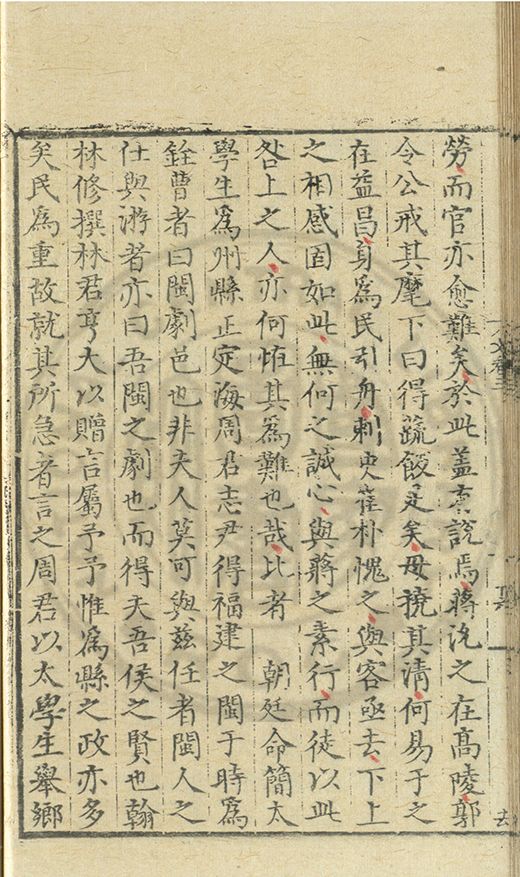 勞而官亦愈難矣於此蓋有說焉蔣沇之在高陵郭
令公戒其麾下曰得蔬飯足矣毋撓其清何易于之
在益昌身爲民引舟刺史崔朴愧之與客亟去下上
之相感固如此無何之誠心與蔣之素行而徒以此
咎上之人亦何恠其爲難也哉比者 朝廷命簡太
學生爲州縣正定海周君志尹得福建之閩于時爲
銓曹者曰閩劇邑也非夫人莫可與兹任者閩人之
仕與游者亦曰吾閩之劇也而得夫吾侯之賢也翰
林修撰林君亨大以贈言屬予予惟爲縣之政亦多
矣民爲重故就其所急者言之周君以太學生舉鄉